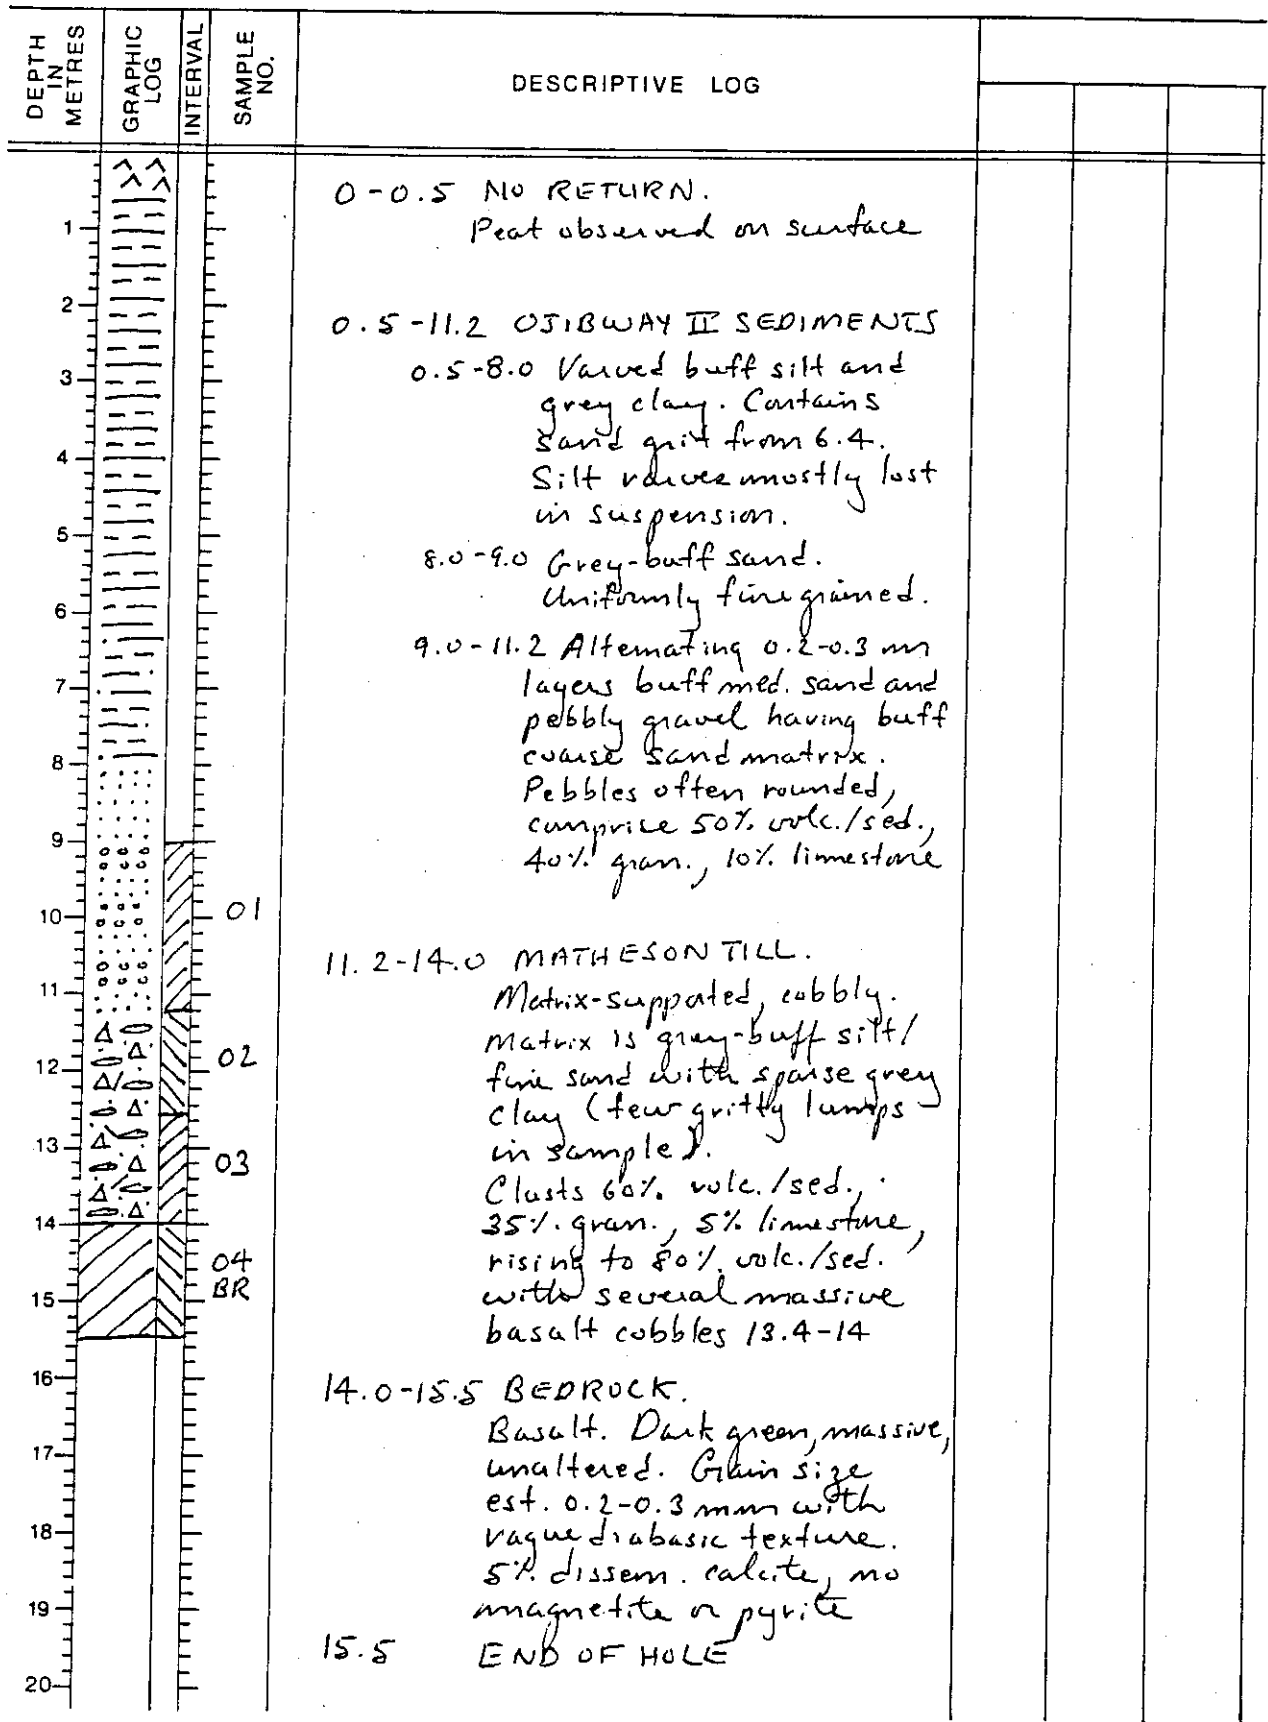 DEPTH IN METRES
GRAPHIC LOG
INTERVAL
SAMPLE NO.
DESCRIPTIVE LOG
0-0.5 NO RETURN.
Peat observed on surface
0.5-11.2 OJIBWAY II SEDIMENTS
0.5-8.0 Varved buff silt and
grey clay. Contains
sand grit from 6.4.
Silt varves mostly lost
in suspension.
8.0-9.0 Grey-buff sand.
Uniformly fine grained.
9.0-11.2 Alternating 0.2-0.3 m
layers buff med. sand and
pebbly gravel having buff
coarse sand matrix.
Pebbles often rounded,
comprise 50% volc./sed.,
40% gran., 10% limestone
11.2-14.0 MATHESON TILL.
Matrix-supported, cobbly.
Matrix is grey-buff silt/
fine sand with sparse grey
clay (few gritty lumps
in sample).
Clasts 60% volc./sed.,
35% gran., 5% limestone,
rising to 80% volc./sed.
with several massive
basalt cobbles 13.4-14
14.0-15.5 BEDROCK.
Basalt. Dark green, massive,
unaltered. Grain size
est. 0.2-0.3 mm with
vague diabasic texture.
5% dissem. calcite, no
magnetite or pyrite
15.5 END OF HOLE
1
2
3
4
5
6
7
8
9
10
11
12
13
14
15
16
17
18
19
20
01
02
03
04
BR